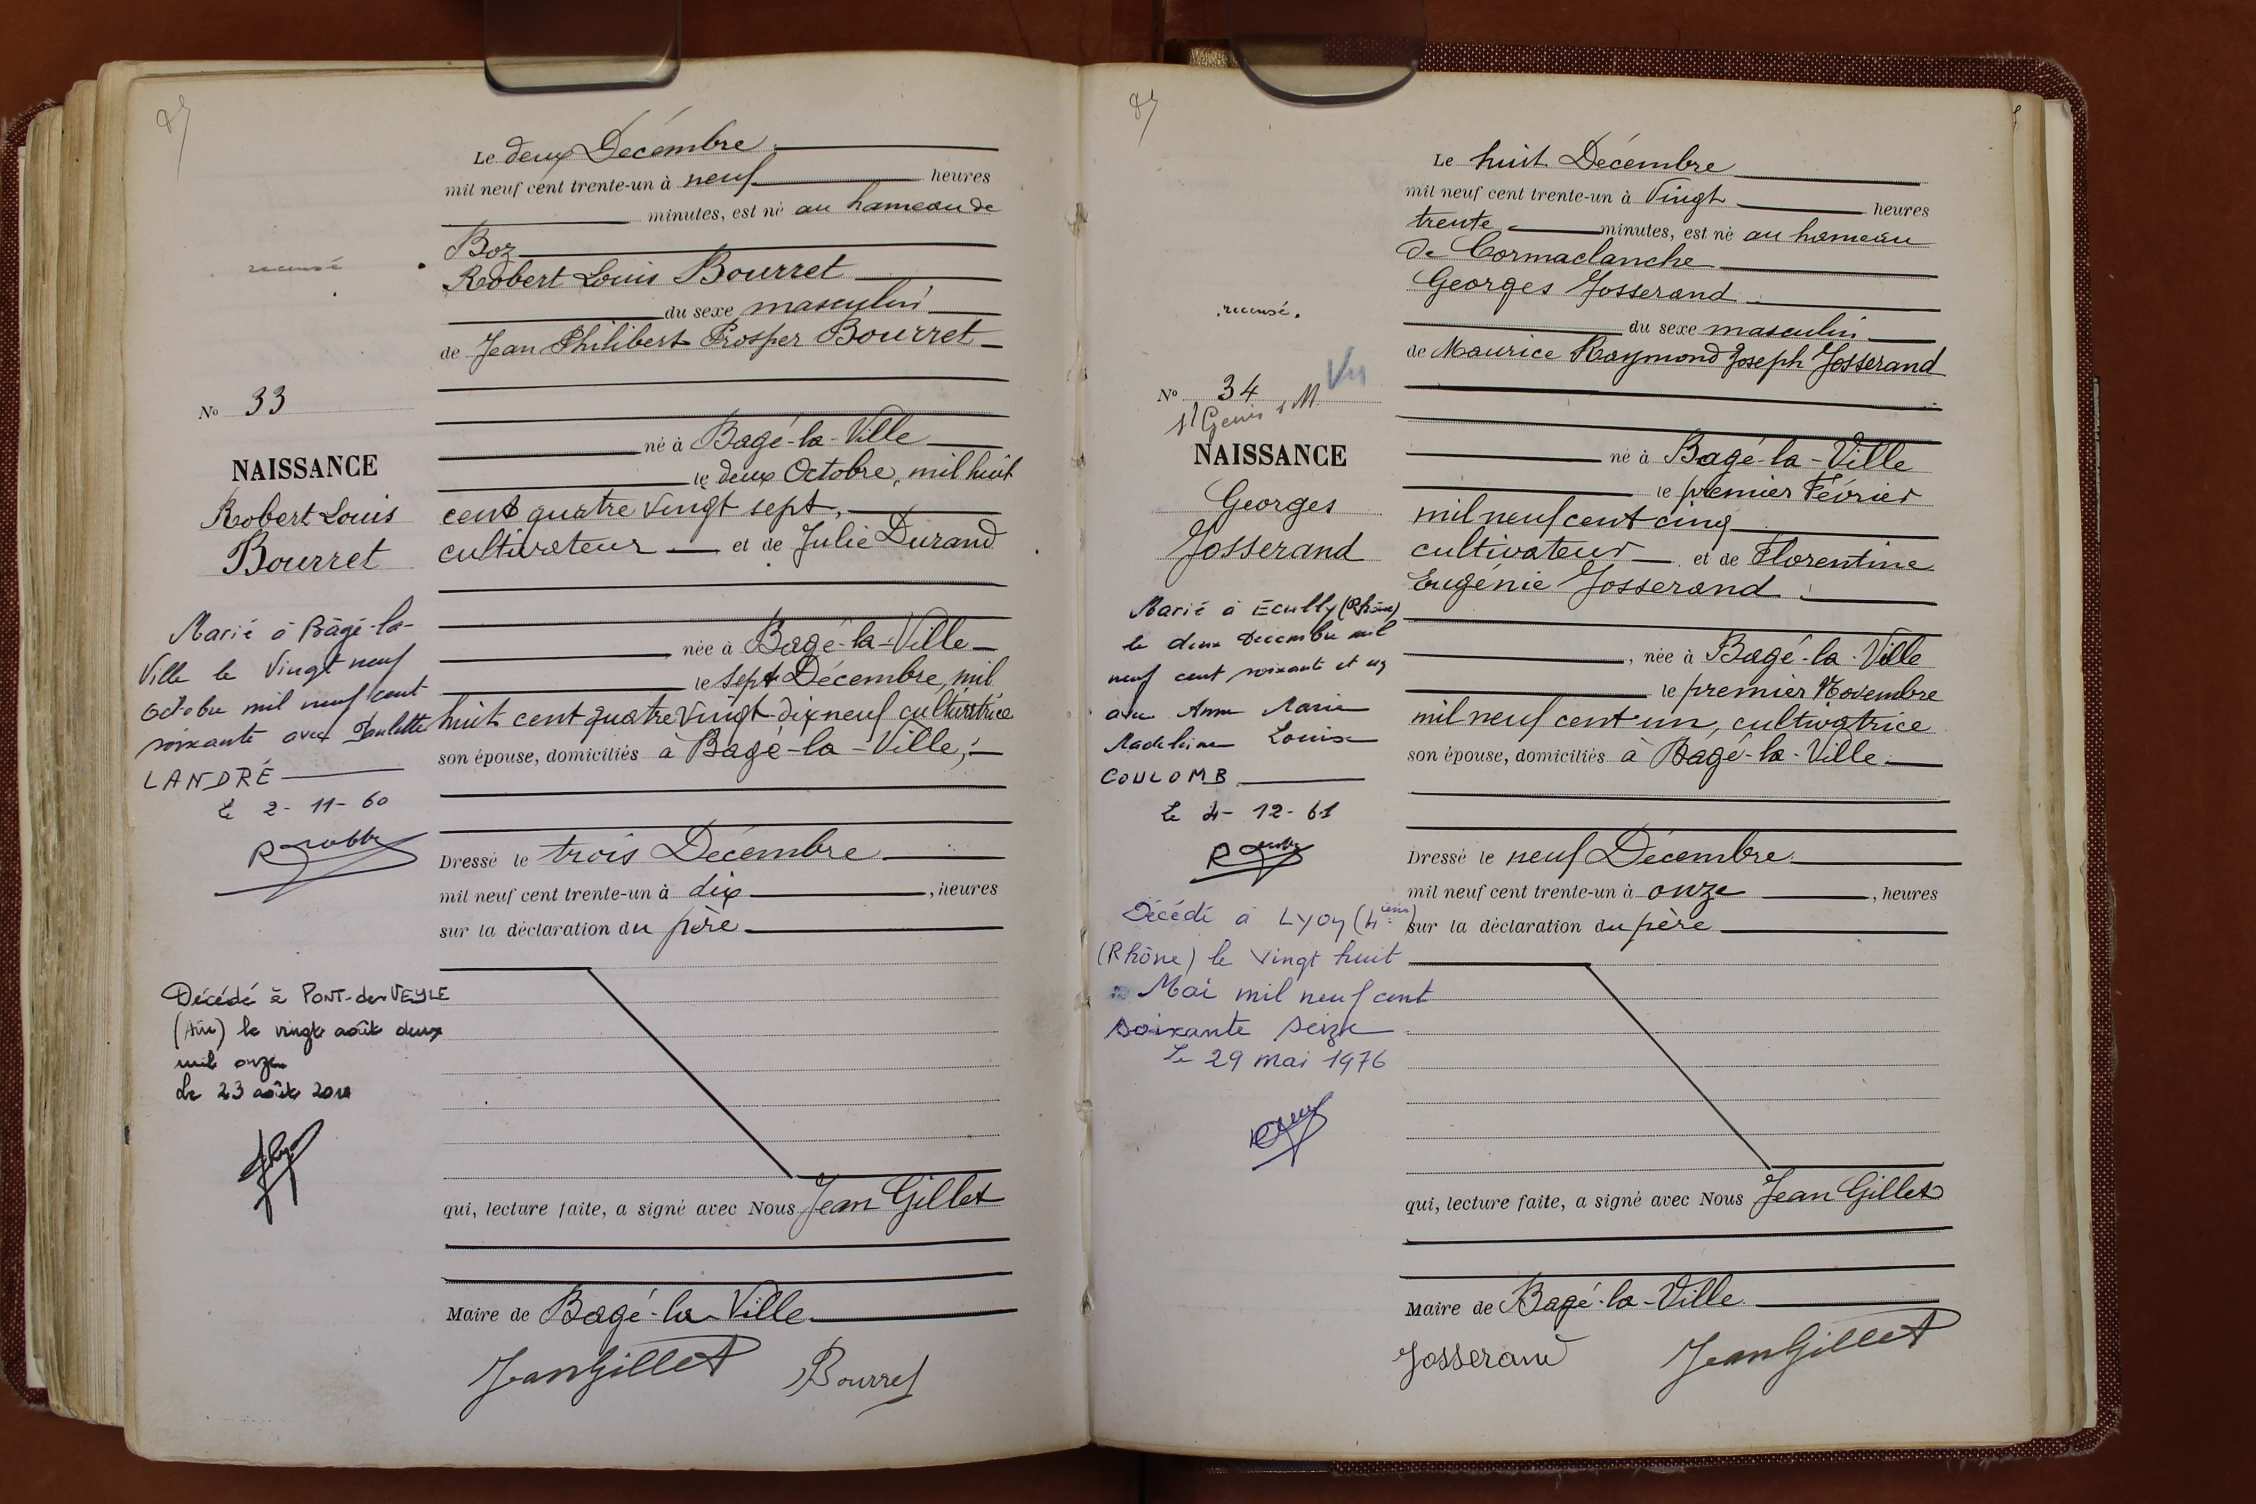 Le deux Décembre
mil neuf cent trente-un à neuf heures
minutes, est né au hameau de
Boz
Robert Louis Bourret
du sexe masculin
de Jean Philibert Prosper Bourret
né à Bagé-la-Ville
le deux Octobre, mil huit
cent quatre vingt sept,
cultivateur et de Julie Durand
née à Bagé-la-Ville
le sept Décembre, mil
huit cent quatre vingt dix neuf cultivatrice
son épouse, domiciliés à Bagé-la-Ville,
Dressé le trois Décembre
mil neuf cent trente-un à dix, heures
sur la déclaration du père
qui, lecture faite, a signé avec Nous Jean Gillet
Maire de Bagé-la-Ville
Jean Gillet Bourret
recensé
No 33
NAISSANCE
Robert Louis
Bourret
Marié à Bâgé-la-
Ville le vingt neuf
octobre mil neuf cent
soixante avec Paulette
LANDRÉ
le 2-11-60
Décédé à PONT-de-VEYLE
(Ain) le vingt août deux
mil onze
Le 23 août
87
Le huit Décembre
mil neuf cent trente-un à vingt heures
trente minutes, est né au hameau
de Cormaclanche
Georges Josserand
du sexe masculin
de Maurice Raymond Joseph Josserand
né à Bagé-la-Ville
le premier Février
mil neuf cent cinq
cultivateur et de Florentine
Eugénie Josserand
, née à Bagé-la-Ville
le premier Novembre
mil neuf cent un, cultivatrice
son épouse, domiciliés à Bagé-la-Ville
Dressé le neuf Décembre
mil neuf cent trente-un à onze, heures
sur la déclaration du père
qui, lecture faite, a signé avec Nous Jean Gillet
Maire de Bagé-la-Ville
Josserand Jean Gillet
recensé.
Vu
No 34
St Genis s M
NAISSANCE
Georges
Josserand
Marié à Ecully (Rhône)
le deux Décembre mil
neuf cent soixante et un
avec Anne Marie
Madeleine Louise
COULOMB
le 4-12-61
Décédé à Lyon (4ème)
(Rhône) le vingt huit
Mai mil neuf cent
soixante seize
Le 29 mai 1976